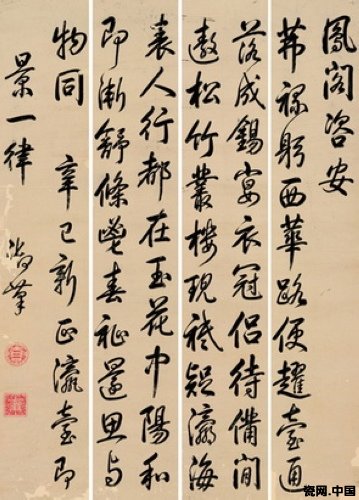 鳳閣咨安
茀祿躬西華路便趯臺通
落成錫宴衣冠侶待備閒
遨松竹叢樓現祗疑瀛海
裏人行都在玉花中陽和
即漸舒條鬯春祉還思與
物同 辛巳新正瀛臺即
景一律
御筆
瓷网.中国